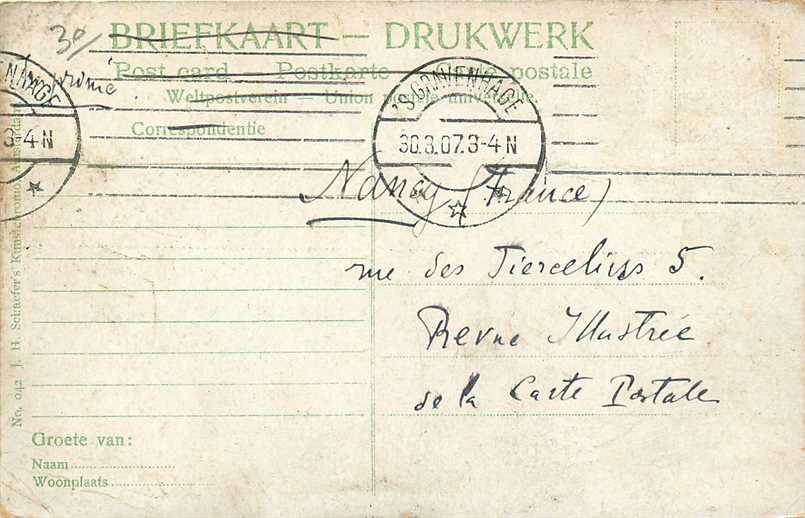 30/
BRIEFKAART — DRUKWERK
Post card — Postkarte — postale
Weltpostverein — Union postale universelle
Correspondentie
'S GRAVENHAGE
30.3.07.3-4 N
NHAGE
3-4 N
Nancy (France)
rue des Tiercelins 5.
Revue Illustrée
de la Carte Postale
No. 042 J. H. Schaefer's Kunstchromo, Amsterdam
Groete van:
Naam
Woonplaats